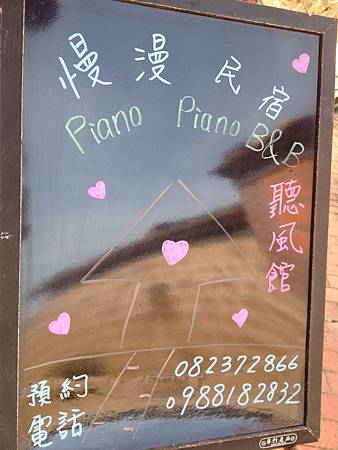 慢漫民宿
Piano Piano B&B
聽風館
預約
電話
082372866
0988182832